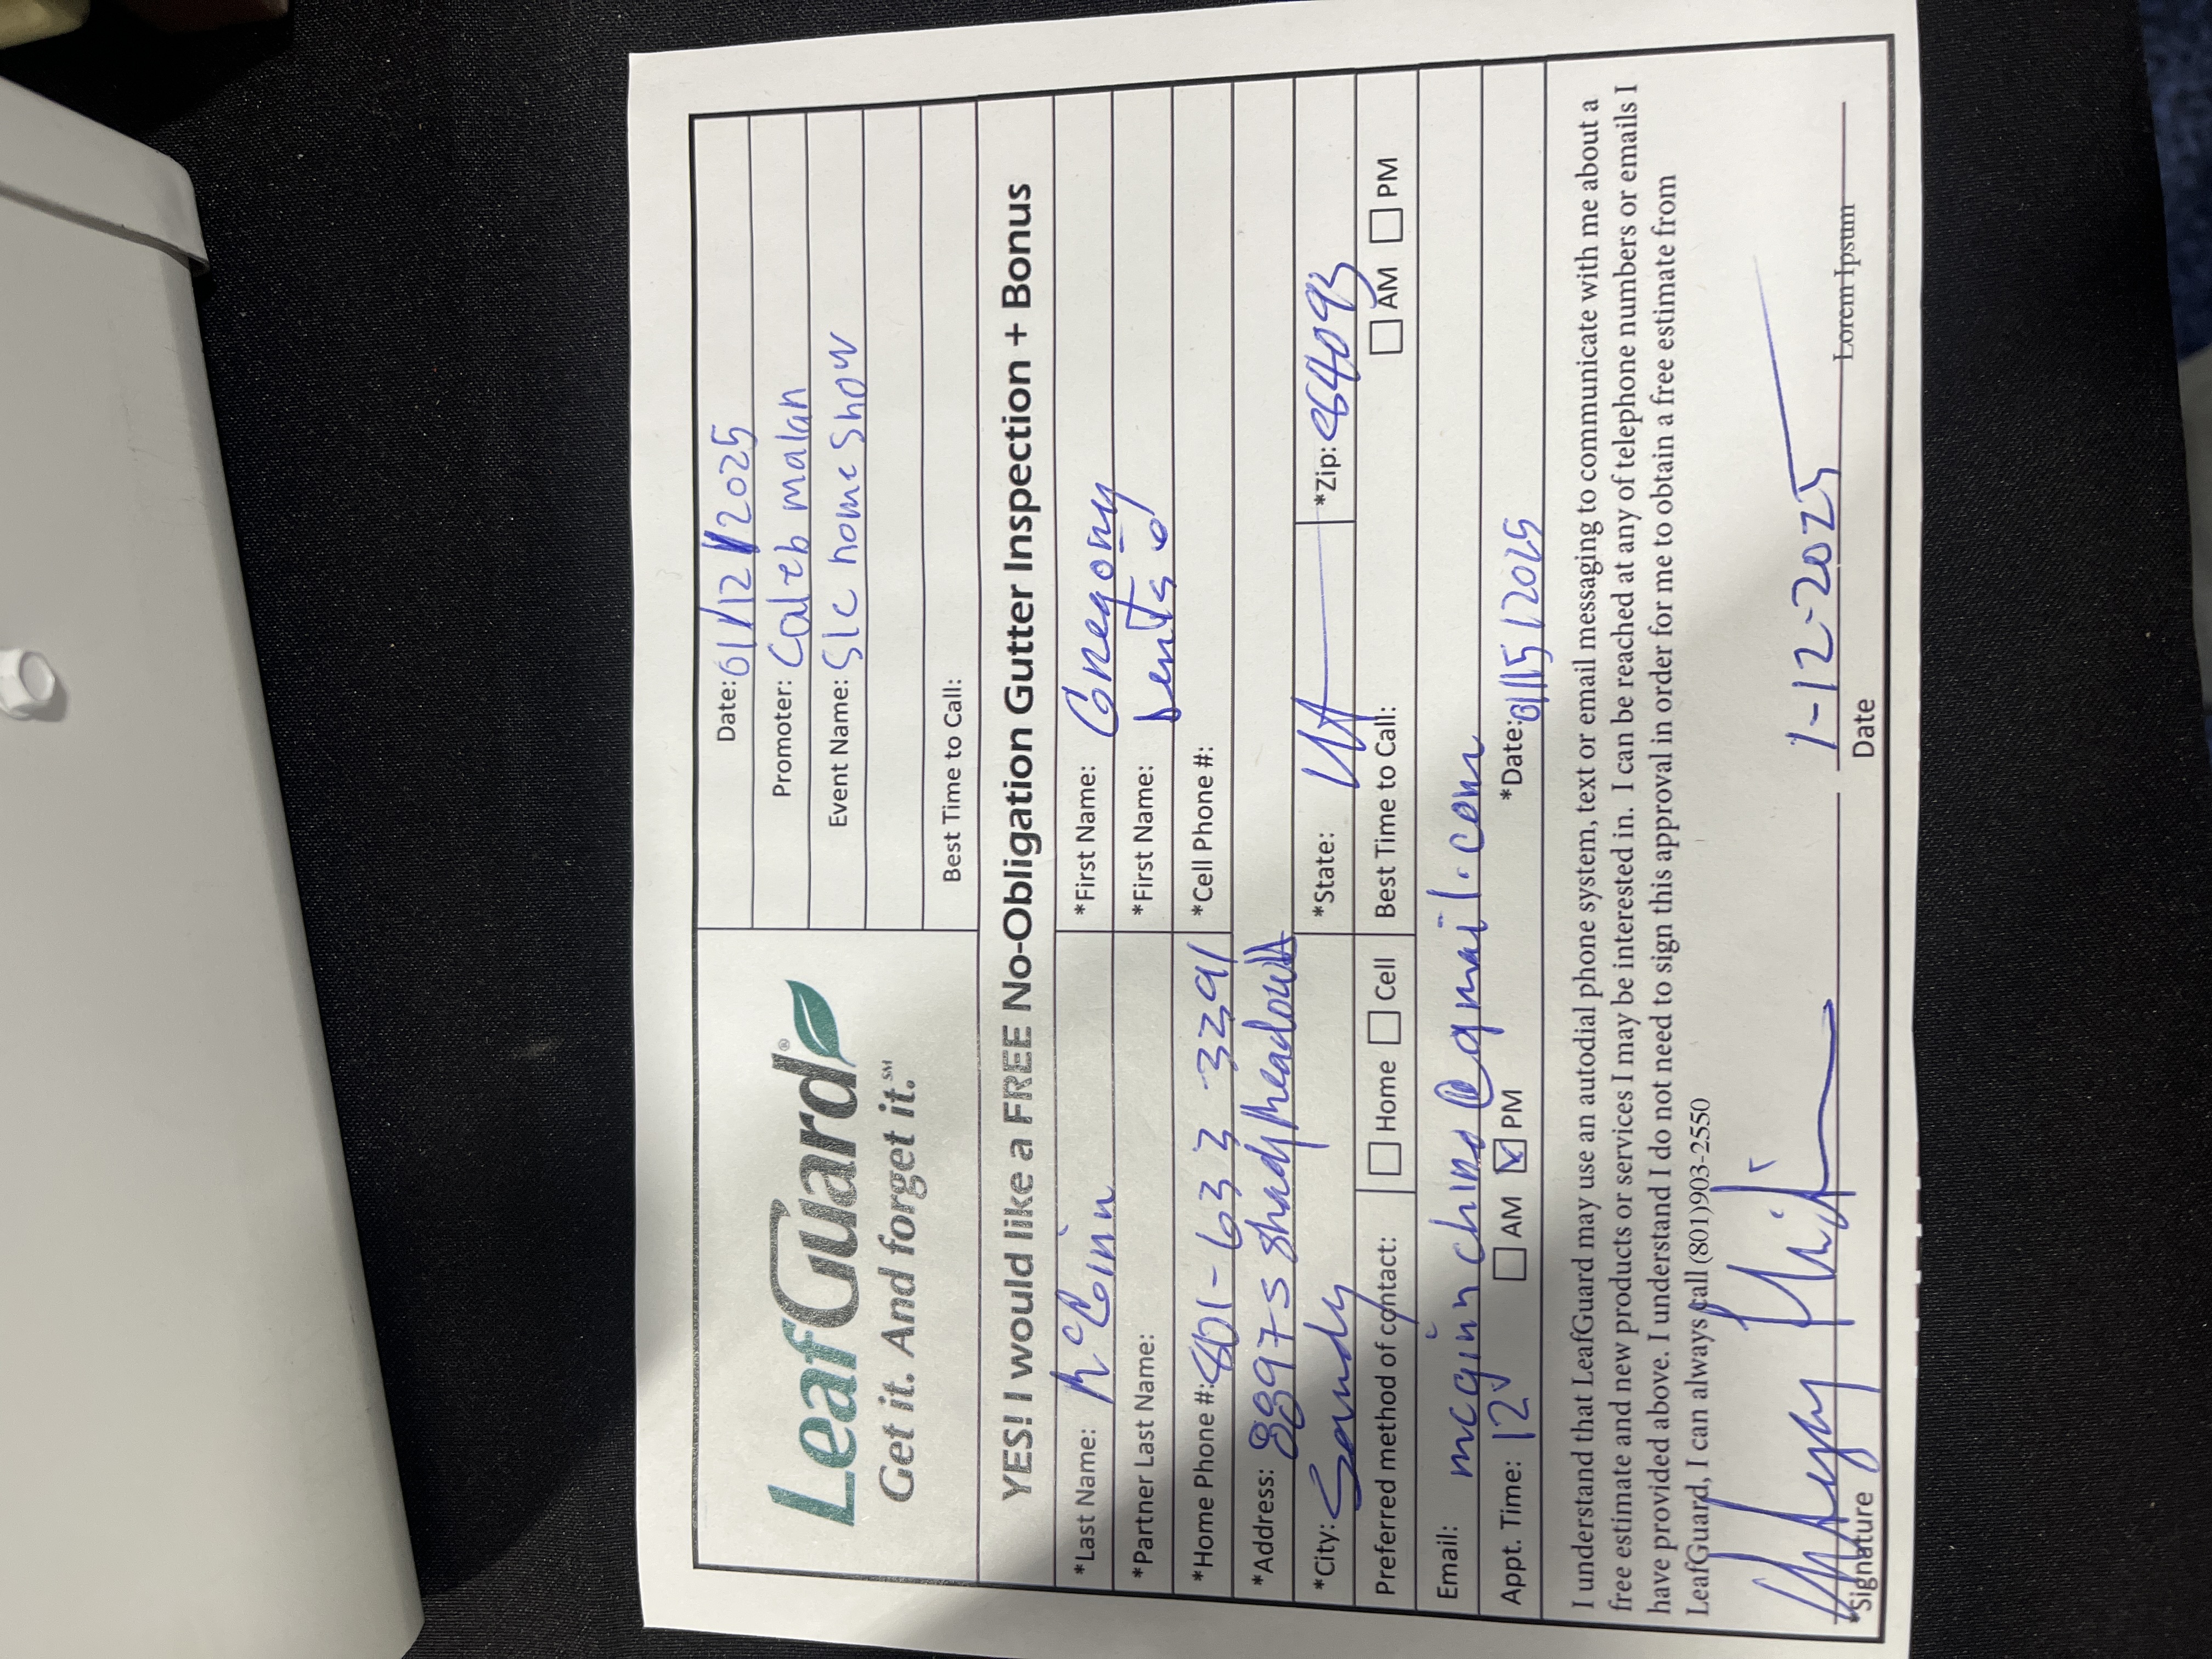 LeafGuard®
Get it. And forget it.℠
Date: 01/12/2025
Promoter: Caleb malan
Event Name: Slc home show
Best Time to Call:
YES! I would like a FREE No-Obligation Gutter Inspection + Bonus
*Last Name: McGinn *First Name: Gregory
*Partner Last Name: *First Name:
*Home Phone #: 801-633 3391 *Cell Phone #:
*Address: 8897 S Shady Meadow
*City: Sandy *State: Ut *Zip: 84093
Preferred method of contact: Home Cell Best Time to Call: AM PM
Email: @gmail.com
Appt. Time: 12 AM PM *Date: 01/15/2025
I understand that LeafGuard may use an autodial phone system, text or email messaging to communicate with me about a
free estimate and new products or services I may be interested in. I can be reached at any of telephone numbers or emails I
have provided above. I understand I do not need to sign this approval in order for me to obtain a free estimate from
LeafGuard, I can always call (801)903-2550
1-12-2025
Lorem Ipsum
*Signature Date